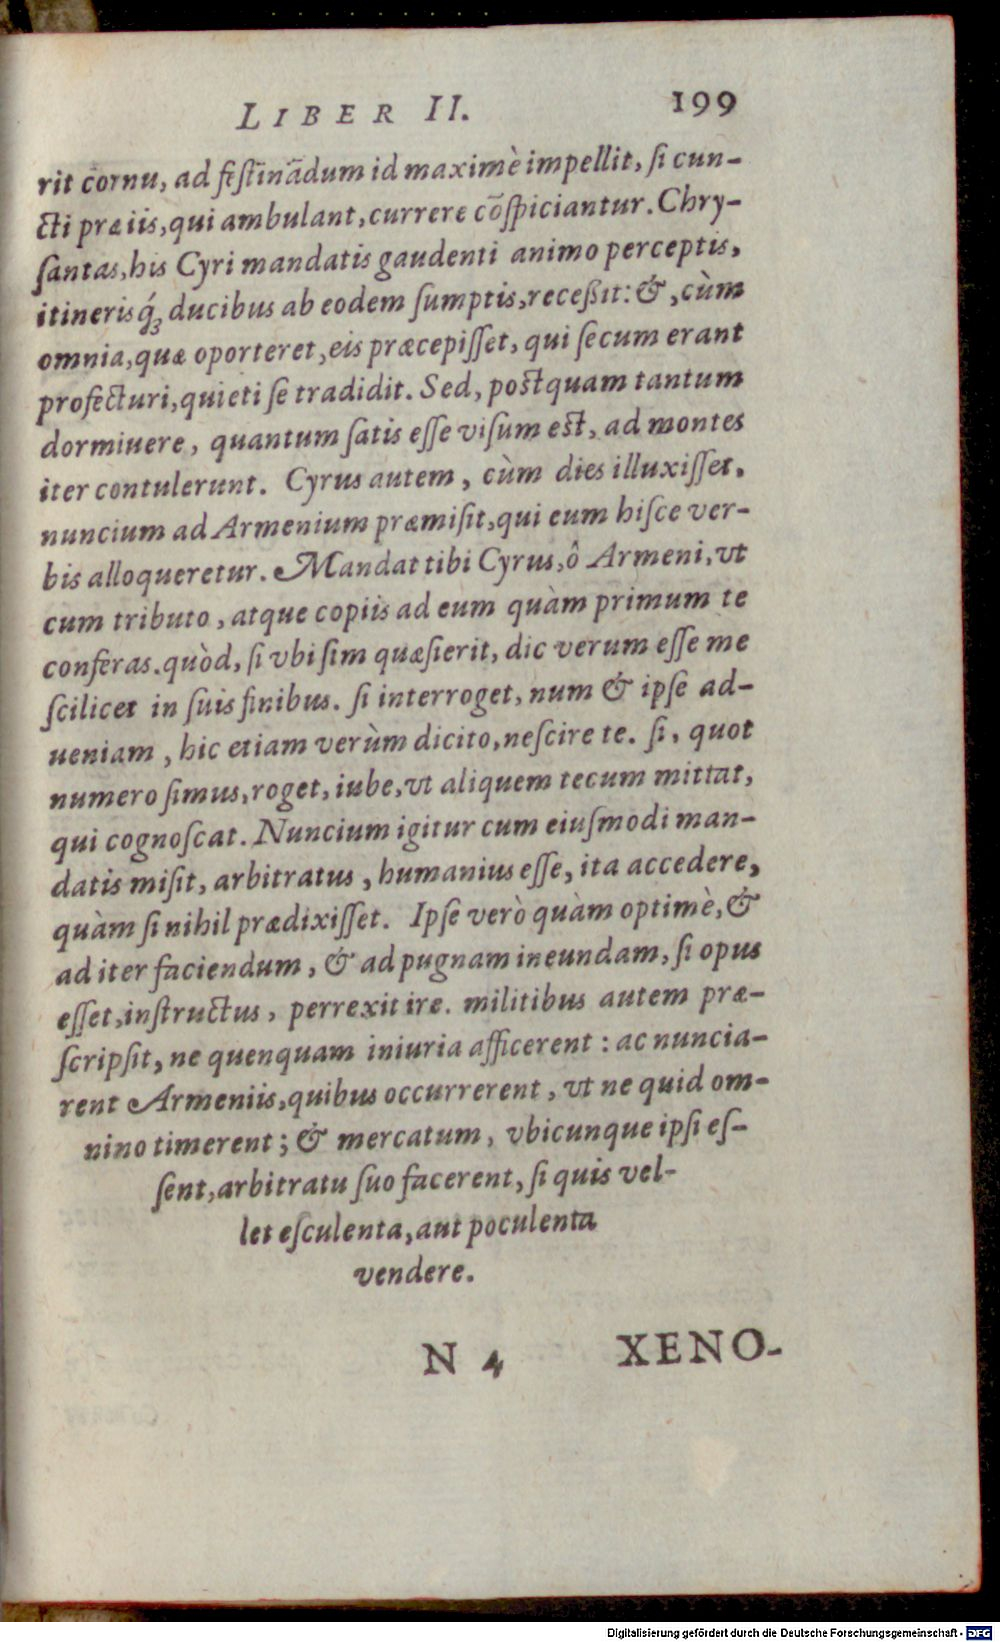 LIBER II. 199
rit cornu, ad festinādum id maximè impellit, si cun-
cti præ iis, qui ambulant, currere cōspiciantur. Chry-
santas, his Cyri mandatis gaudenti animo perceptis,
itinerisq́; ducibus ab eodem sumptis, receßit: &, cùm
omnia, quæ oporteret, eis præcepisset, qui secum erant
profecturi, quieti se tradidit. Sed, postquam tantum
dormiuere, quantum satis esse visum est, ad montes
iter contulerunt. Cyrus autem, cùm dies illuxisset,
nuncium ad Armenium præmisit, qui eum hisce ver-
bis alloqueretur. Mandat tibi Cyrus, ô Armeni, vt
cum tributo, atque copiis ad eum quàm primum te
conferas. quòd, si vbi sim quæsierit, dic verum esse me
scilicet in suis finibus. si interroget, num & ipse ad-
ueniam, hic etiam verùm dicito, nescire te. si, quot
numero simus, roget, iube, vt aliquem tecum mittat,
qui cognoscat. Nuncium igitur cum eiusmodi man-
datis misit, arbitratus, humanius esse, ita accedere,
quàm si nihil prædixisset. Ipse verò quàm optimè, &
ad iter faciendum, & ad pugnam ineundam, si opus
esset, instructus, perrexit ire. militibus autem præ-
scripsit, ne quenquam iniuria afficerent: ac nuncia-
rent Armeniis, quibus occurrerent, vt ne quid om-
nino timerent; & mercatum, vbicunque ipsi es-
sent, arbitratu suo facerent, si quis vel-
let esculenta, aut poculenta
vendere.
N 4 XENO-
Digitalisierung gefördert durch die Deutsche Forschungsgemeinschaft - DFG